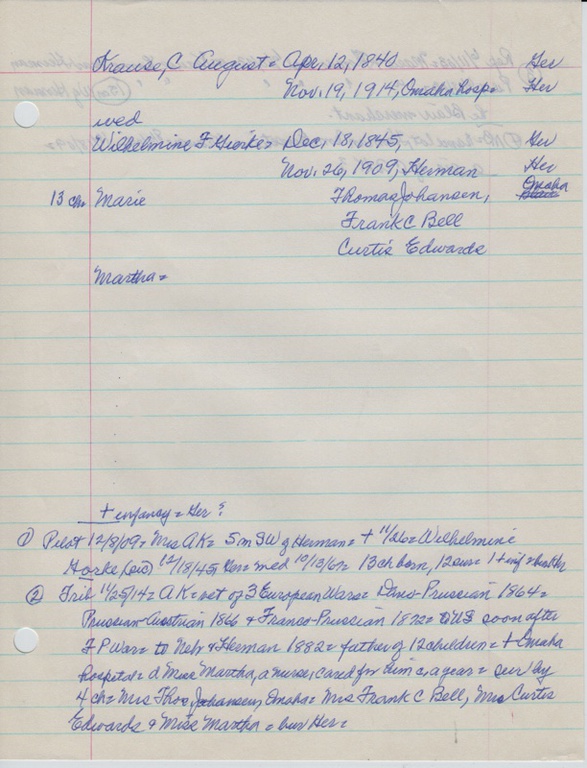 Krause, C August = Apr, 12, 1840 Ger
Nov. 19, 1914, Omaha hosp = Her
wed
Wilhelmine F Gierke = Dec, 18, 1845, Ger
Nov. 26, 1909, Herman Her
13 ch = Marie Thomas Johansen, Omaha
Frank C Bell
Curtis Edwards
Martha =
+ infancy = Her ?
① Pilot 12/8/09 = Mrs AK = 5 m SW of Herman = + 11/26 = Wilhelmine
(sic) 12/18/45, Ger = med 10/13/67 = 13 ch born, 12 sur = 1 + inf =
② Trib 11/25/14 = AK = vet of 3 European Wars = Dano-Prussian 1864 =
Prussian-Austrian 1866 & Franco-Prussian 1872 = to US soon after
F P War = to Nebr & Herman 1882 = father of 12 children = + Omaha
hospital = d Miss Martha, a nurse, cared for him c a year = sur by
4 ch = Mrs Thos Johansen, Omaha = Mrs Frank C Bell, Mrs Curtis
Edwards & Miss Martha = bur Her =